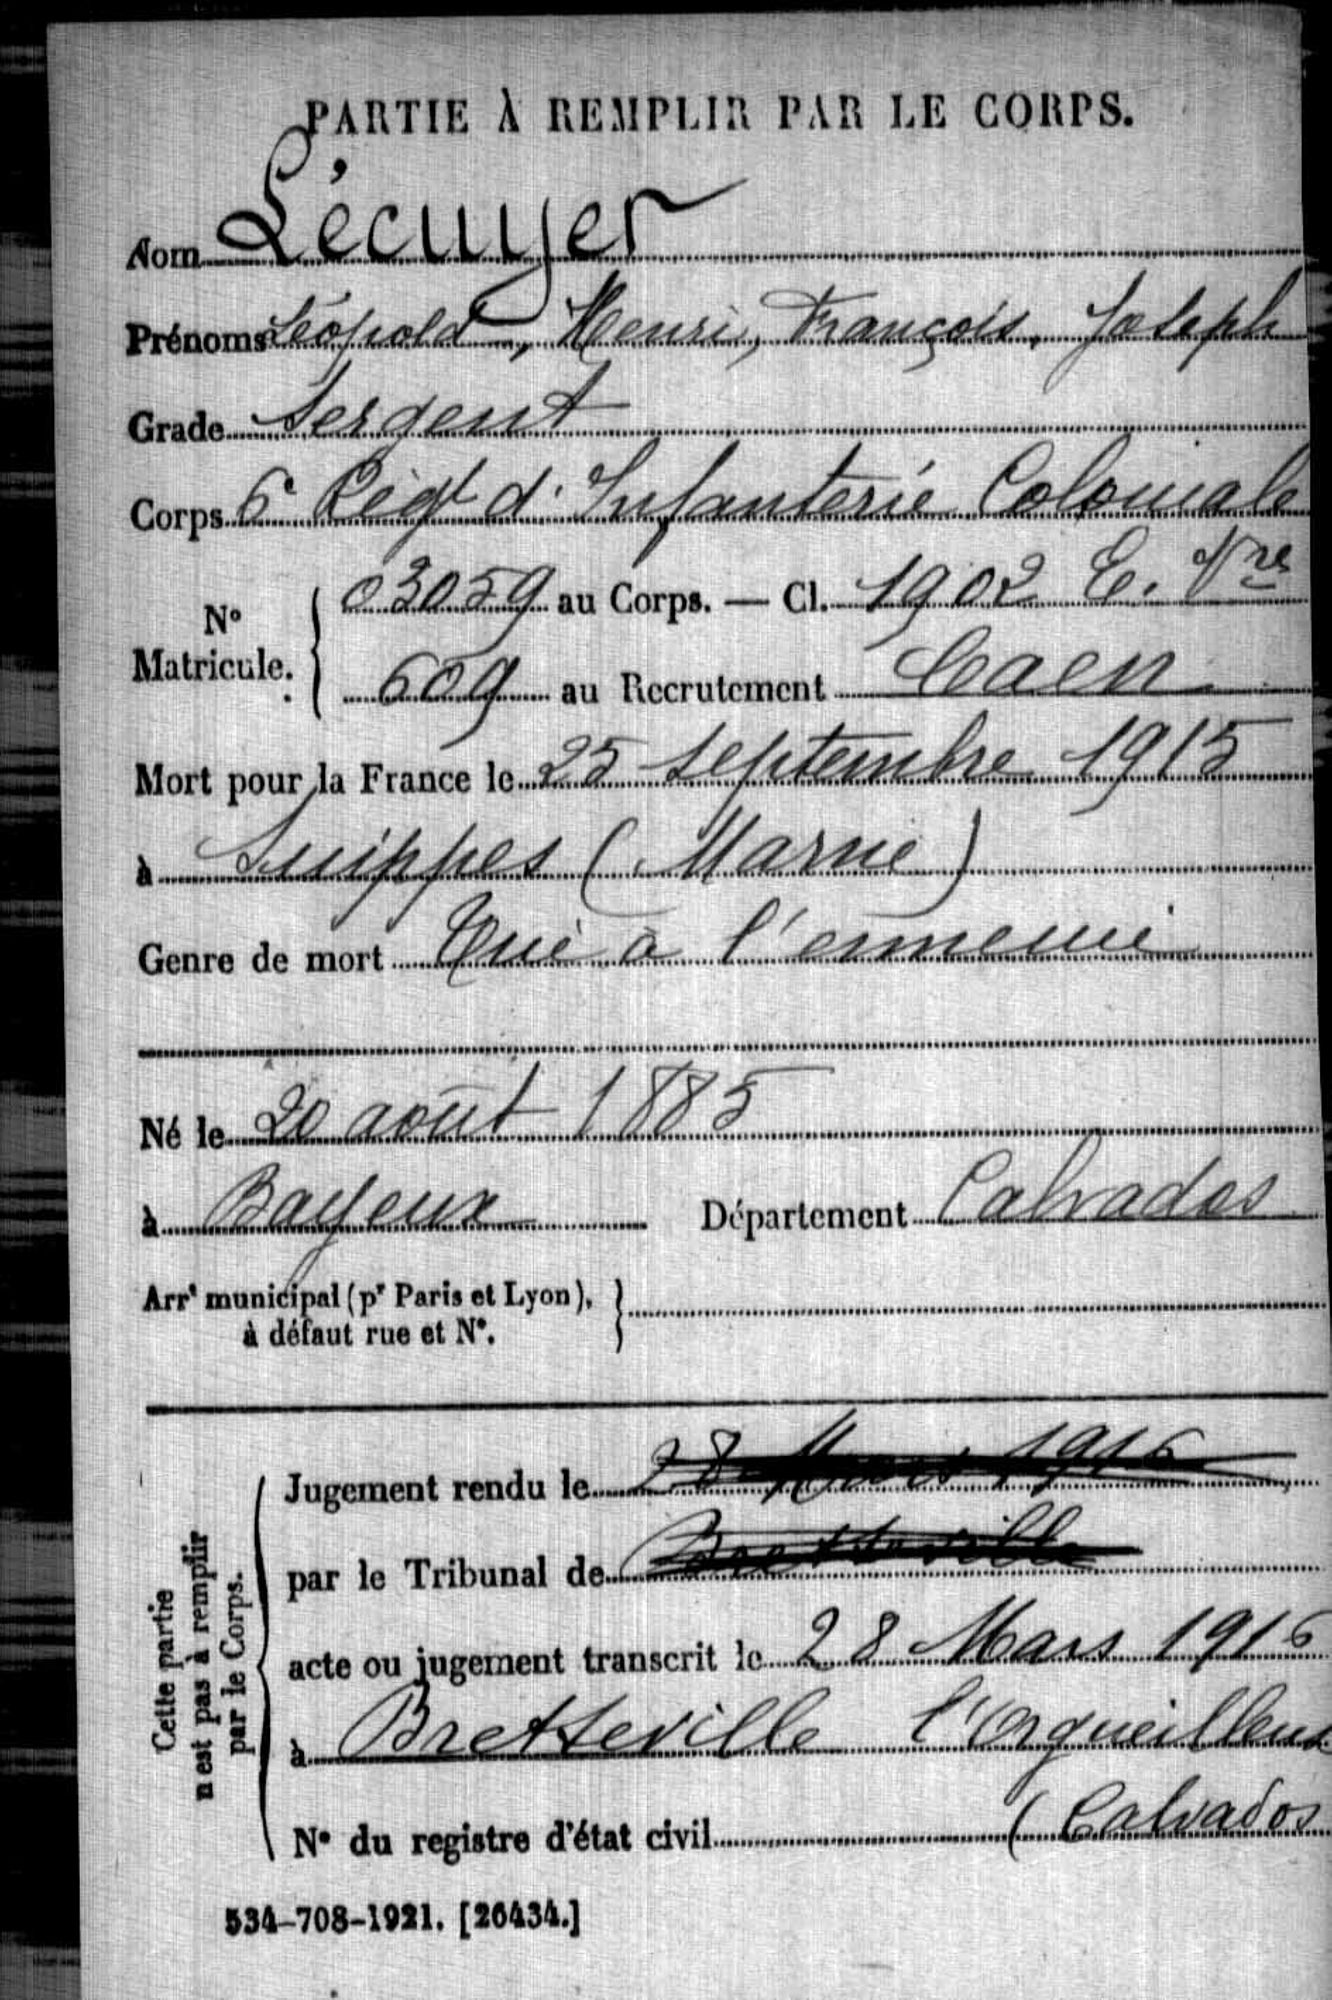 PARTIE À REMPLIR PAR LE CORPS.
Nom Lécuyer
Prénoms Léopold, Henri, François, Joseph
Grade Sergent
Corps 6e Régt d'Infanterie Coloniale
No Matricule. { 03059 au Corps. — Cl. 1902 E. Vres
609 au Recrutement Caen
Mort pour la France le 25 septembre 1915
à Suippes (Marne)
Genre de mort Tué à l'ennemi
Né le 20 août 1885
à Bayeux Département Calvados
Arrt municipal (pr Paris et Lyon), }
à défaut rue et No.
Cette partie
n'est pas à remplir
par le Corps.
Jugement rendu le 28 Mars 1916
par le Tribunal de Bretteville
acte ou jugement transcrit le 28 Mars 1916
à Bretteville l'Orgueilleuse
No du registre d'état civil (Calvados
534-708-1921. [26434.]